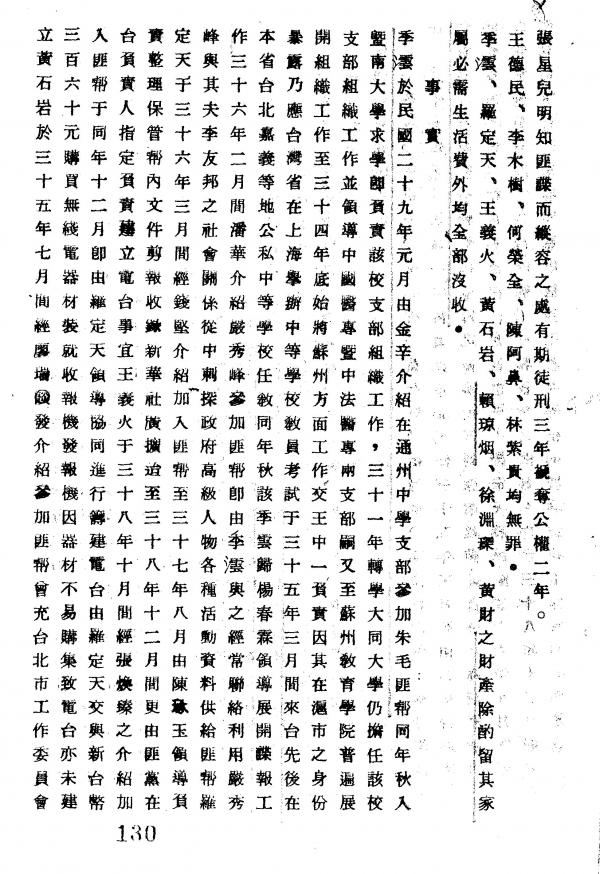 張星兒明知匪諜而縱容之處有期徒刑三年褫奪公權二年。
王德民、李木樹、何榮全、陳阿鼻、林紫貴均無罪。
季澐、羅定天、王義火、黃石岩、賴瓊烟、徐淵琛、黃財之財產除酌留其家
屬必需生活費外均全部沒收。
事實
季澐於民國二十九年元月由金辛介紹在通州中學支部參加朱毛匪幫同年秋入
暨南大學求學卽負責該校支部組織工作，三十一年轉學大同大學仍擔任該校
支部組織工作並領導中國醫專暨中法醫專兩支部嗣又至蘇州敎育學院普遍展
開組織工作至三十四年底始將蘇州方面工作交王中一負責因其在滬市之身份
暴露乃應台灣省在上海舉辦中等學校敎員考試于三十五年三月間來台先後在
本省台北嘉義等地公私中等學校任敎同年秋該季雲歸楊春霖領導展開諜報工
作三十六年二月間潘華介紹嚴秀峰參加匪幫卽由季澐與之經常聯絡利用嚴秀
峰與其夫李友邦之社會關係從中刺探政府高級人物各種活動資料供給匪幫羅
定天于三十六年三月間經錢堅介紹加入匪幫至三十七年八月由陳玉領導負
責整理保管幫內文件剪報收錄新華社廣播迨至三十八年十二月間更由匪黨在
台負責人指定負責建立電台事宜王義火于三十八年十月間經張煥臻之介紹加
入匪幫于同年十二月卽由羅定天領導協同進行籌建電台由羅定天交與新台幣
三百六十元購買無綫電器材裝就收報機發報機因器材不易購集致電台亦未建
立黃石岩於三十五年七月間經廖瑞發介紹參加匪幫會充台北市工作委員會
130